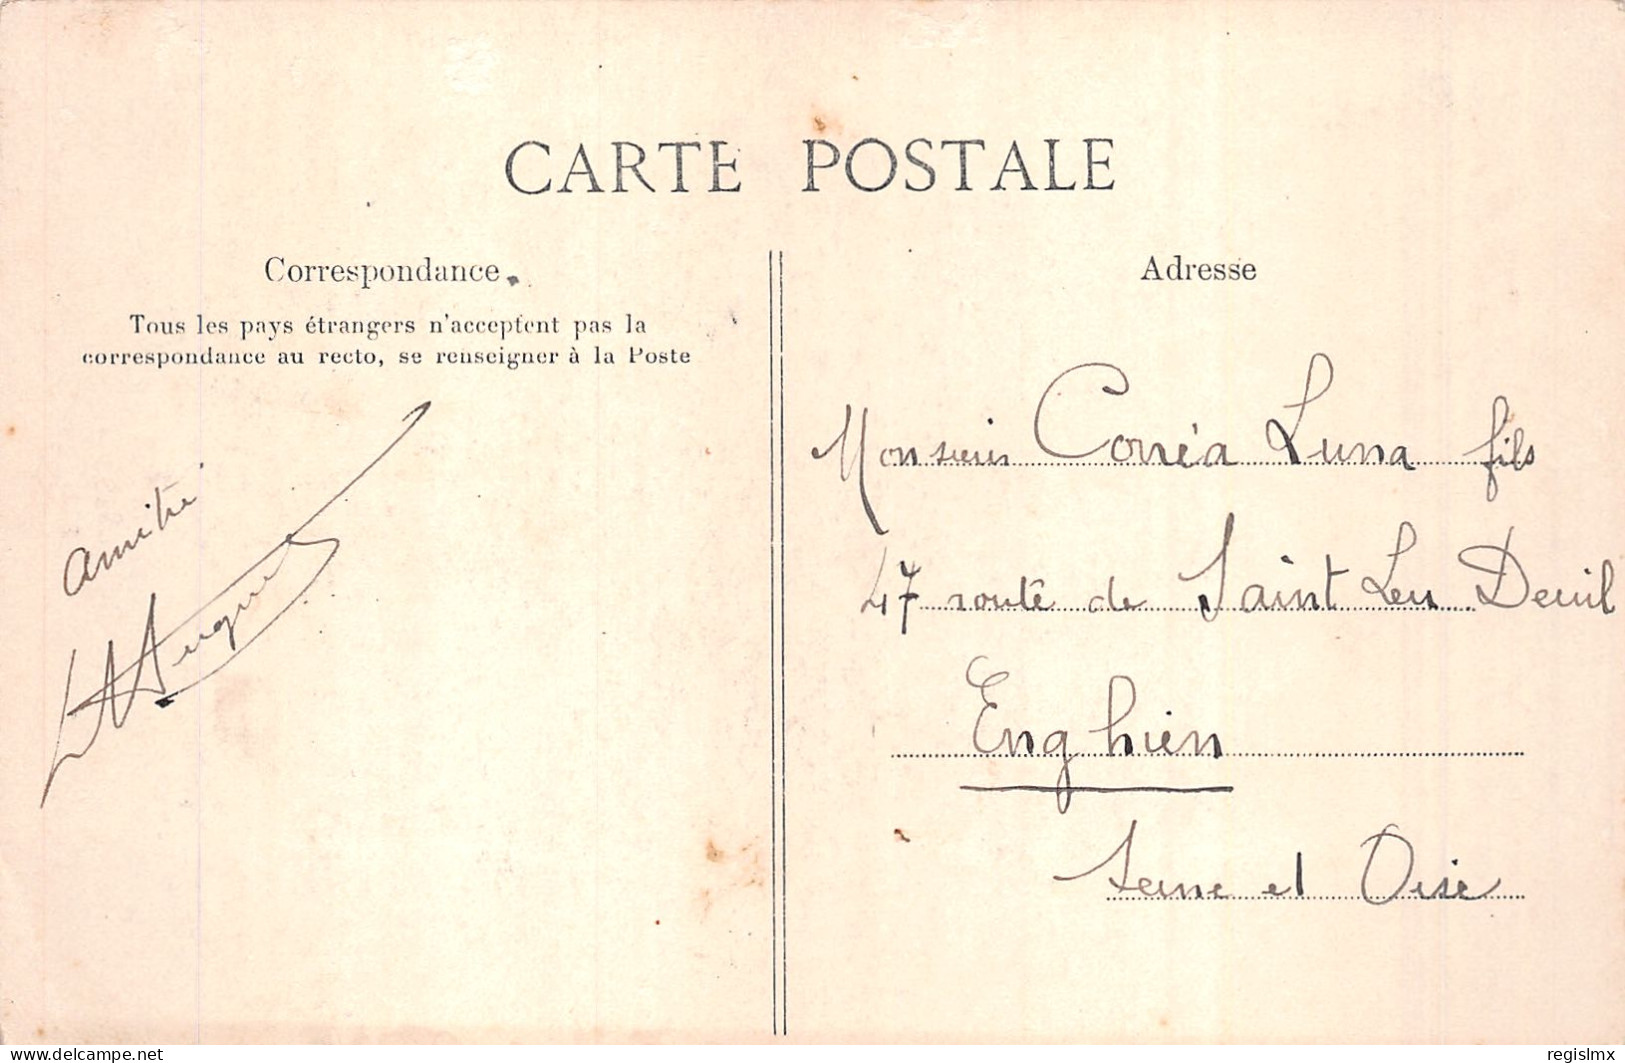 CARTE POSTALE
Correspondance
Tous les pays étrangers n'acceptent pas la
correspondance au recto, se renseigner à la Poste
amitié
Adresse
Monsieur Corréa Luna fils
47 route de Saint Leu Deuil
Enghien
Seine et Oise
delcampe.net
regislmx